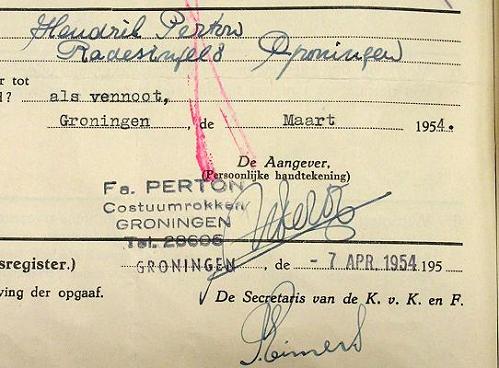 Hendrik Perton
Radesingel 8 Groningen
r tot
d? als vennoot,
Groningen, de Maart 1954.
De Aangever.
(Persoonlijke handtekening)
Fa. PERTON
Costuumrokken
GRONINGEN
Tel. 29605
sregister.) GRONINGEN, de - 7 APR. 1954 195
ving der opgaaf. De Secretaris van de K. v. K. en F.